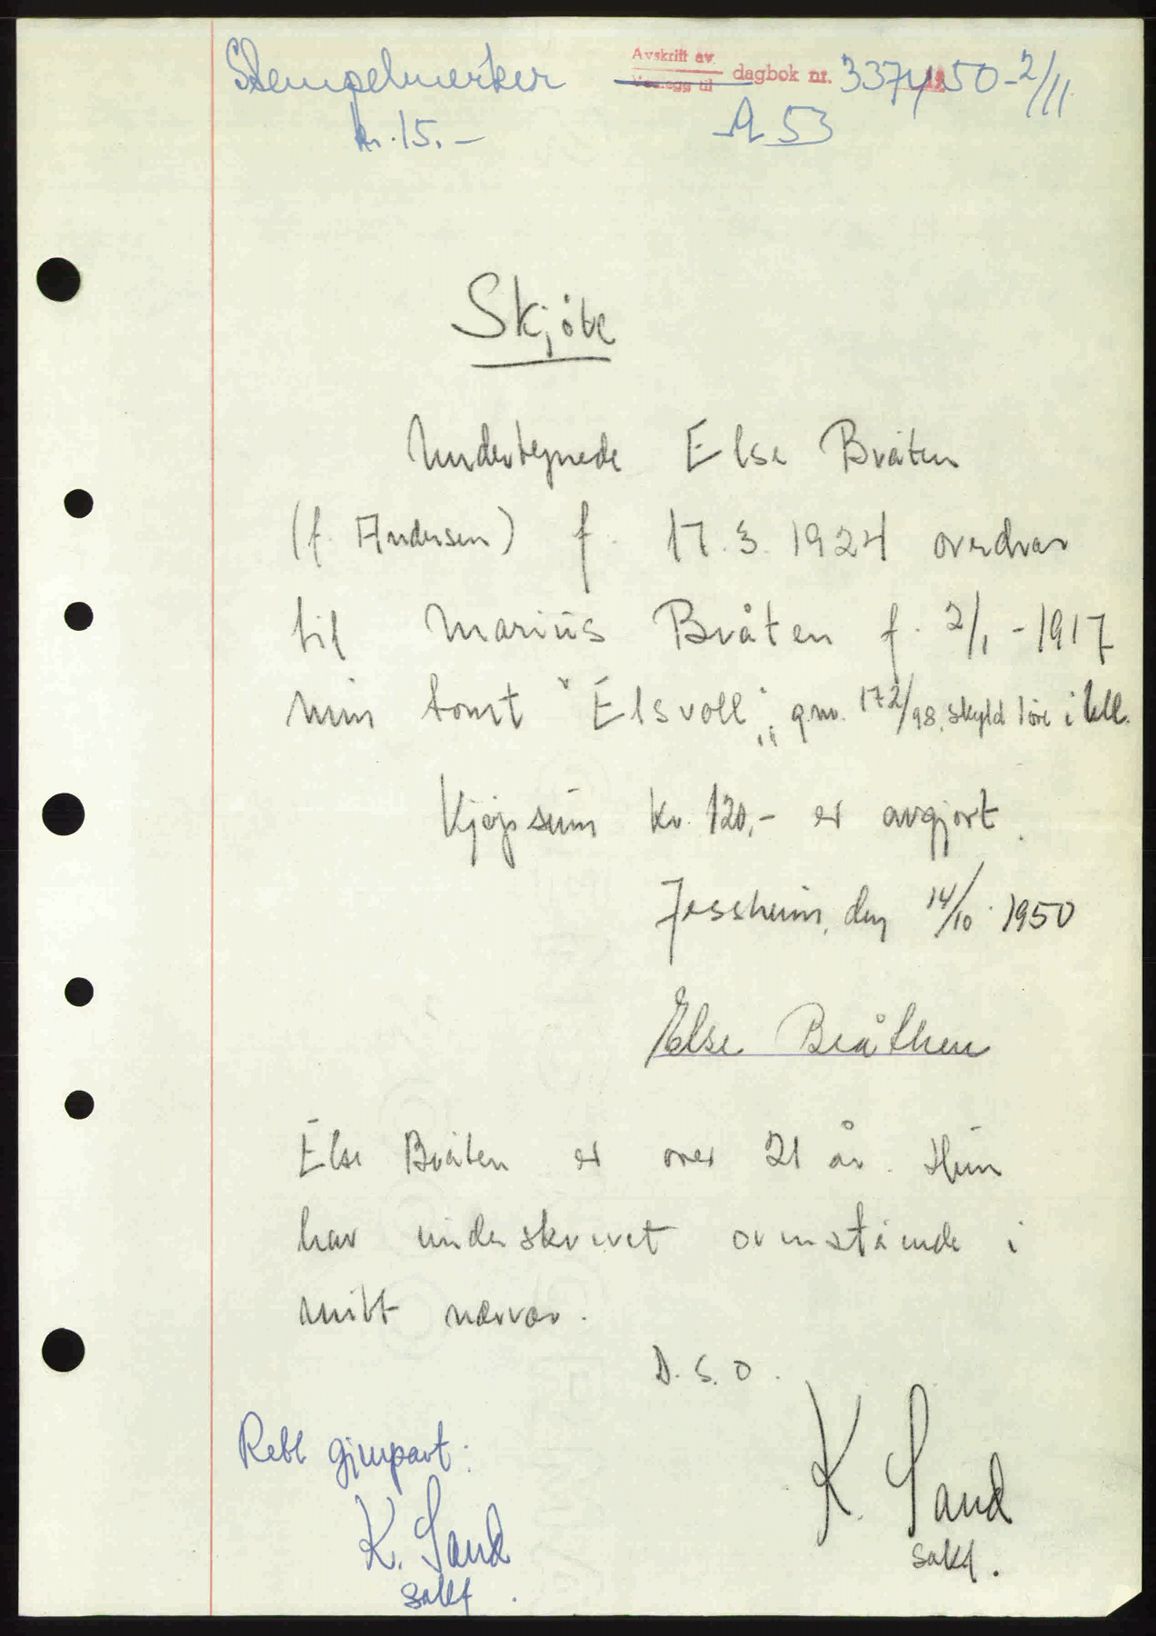 Stempelmerker
kr. 15.-
Avskrift av
Vedlegg til
dagbok nr. 3374 1950-2/11
A 53
Skjöte
Undertegnede Else Bråten
(f. Andersen) f. 17.3.1924 overdrar
til Marius Bråten f. 2/1-1917
min tomt "Elsvoll", gnr. 172/98, skyld 1 øre i Ull.
Kjøpesum kr. 120,- er avgjort.
Jessheim, den 14/10 1950
Else Bråthen
Else Bråten er over 21 år. Hun
har underskrevet ovenstående i
mitt nærvær.
D.S.O.
K. Sand
sakf.
Rett gjenpart:
K. Sand
sakf.